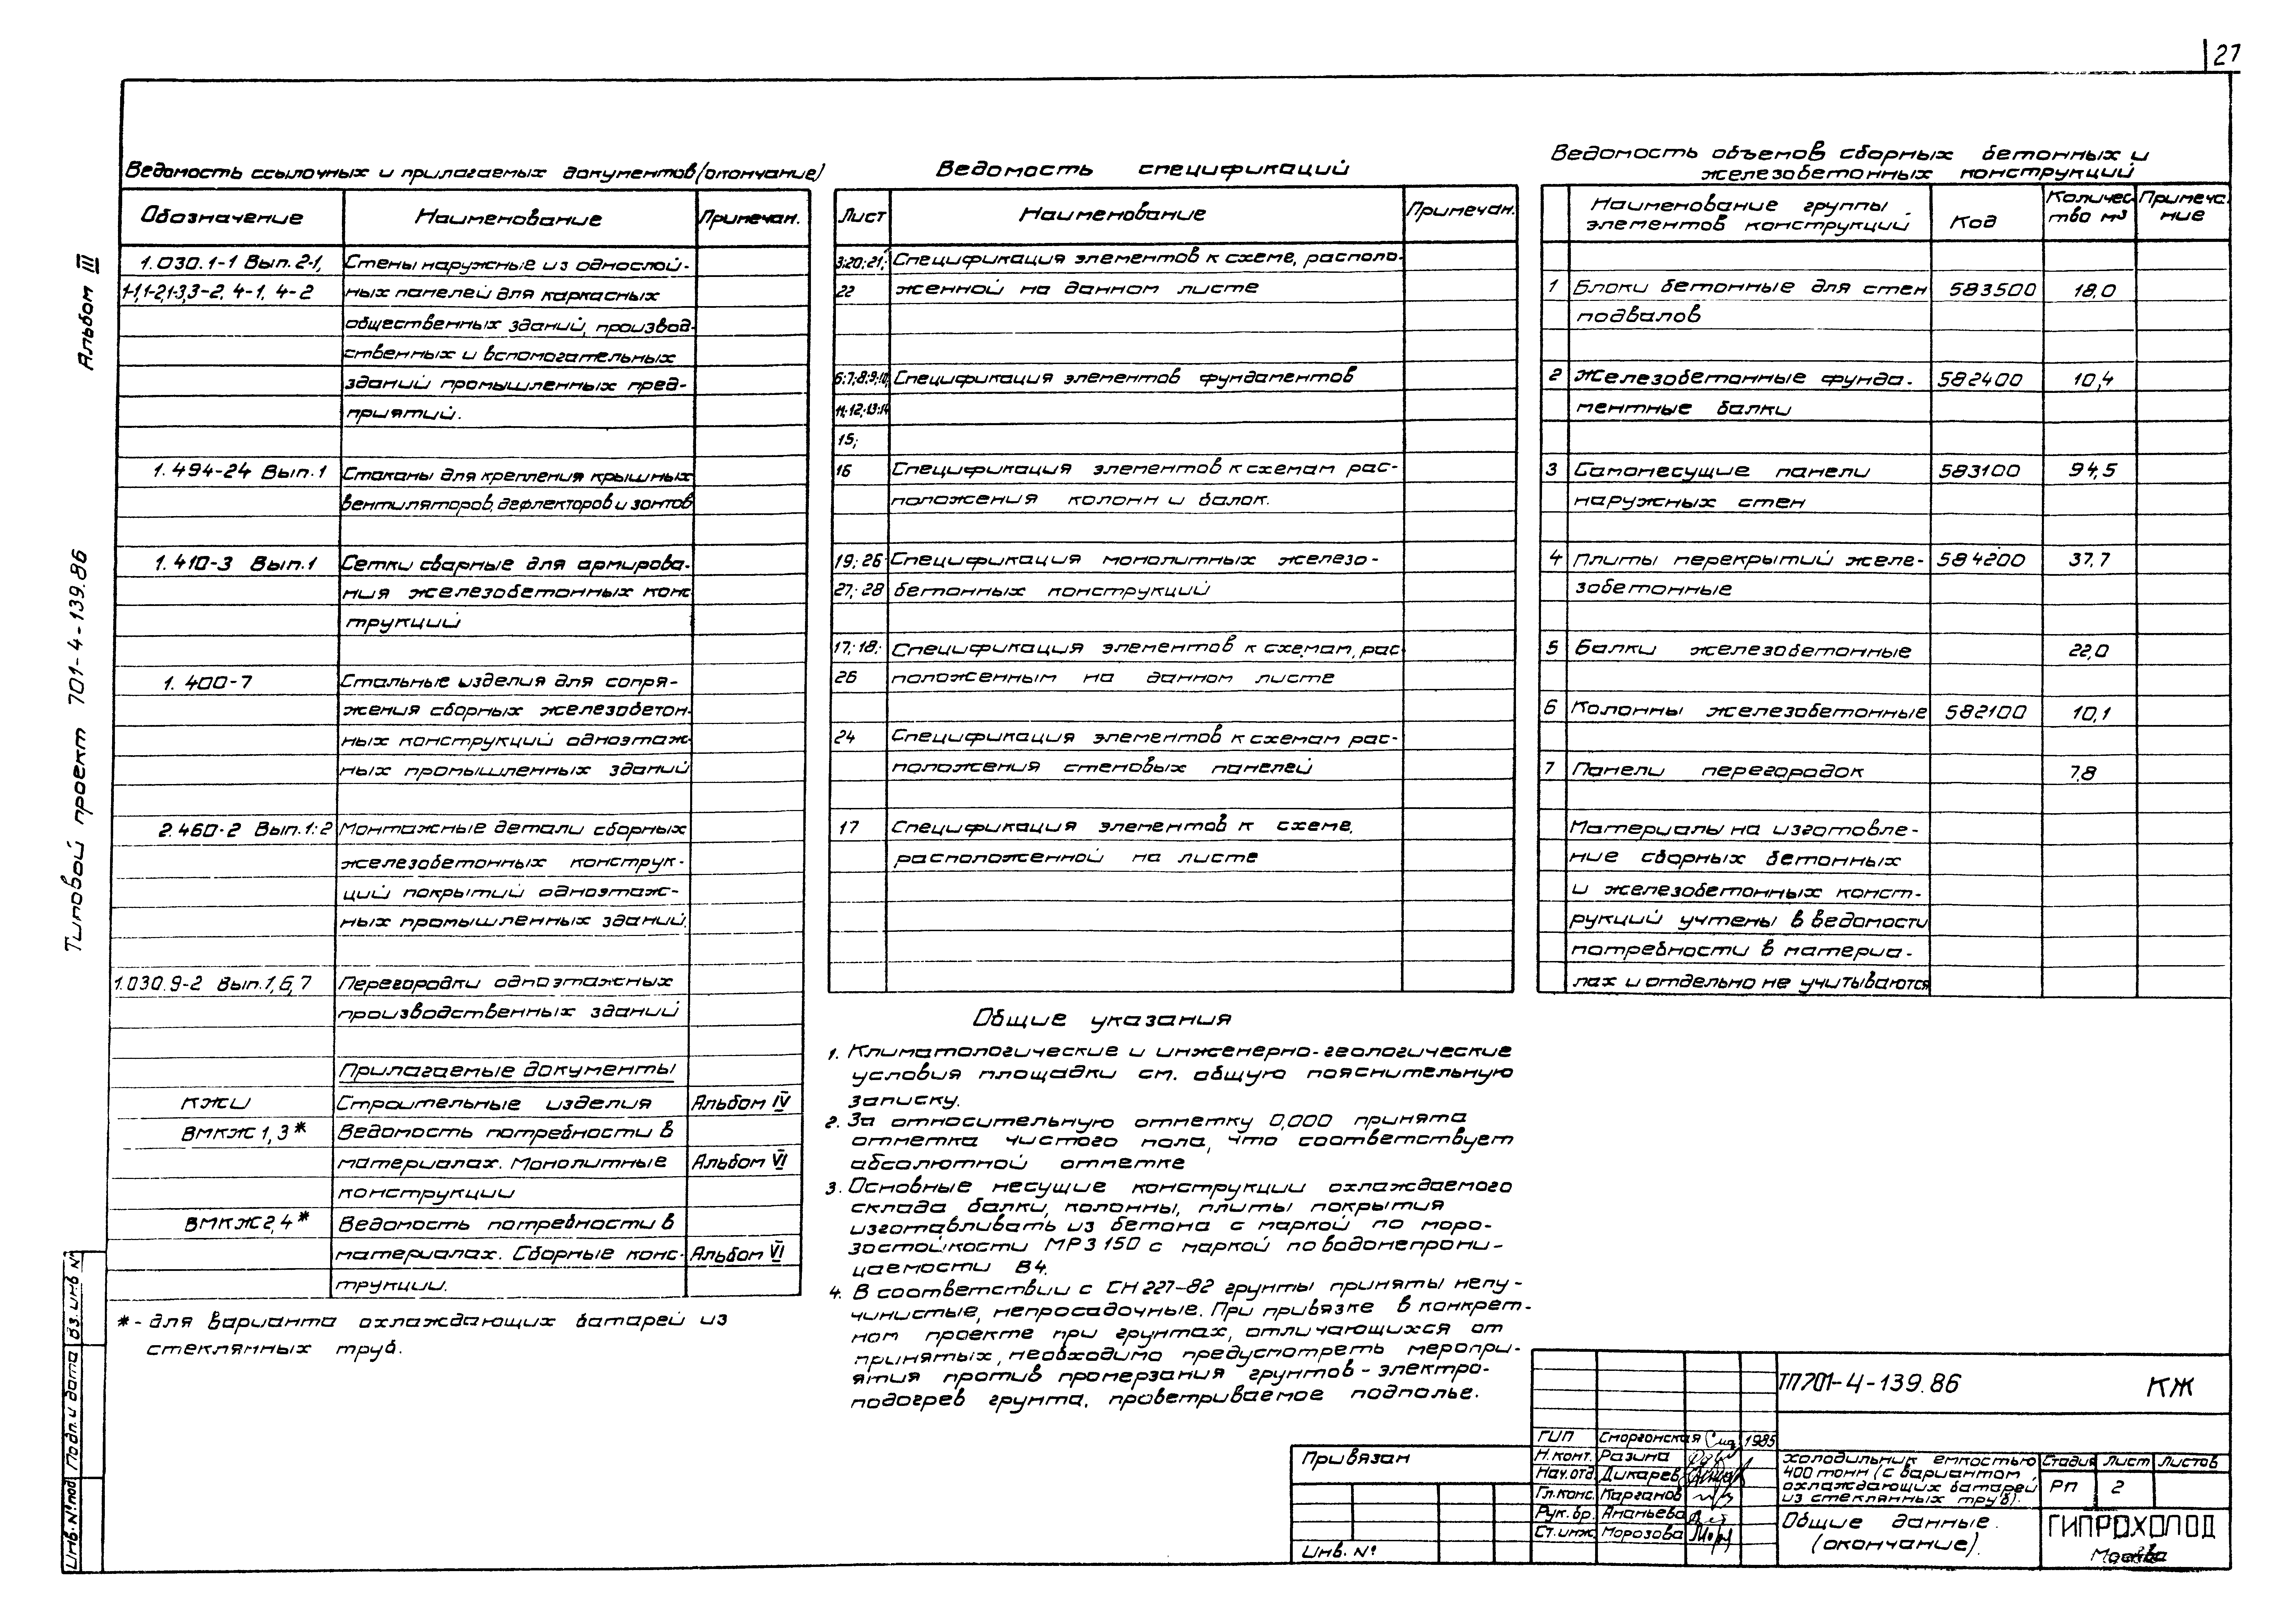 27
Альбом III
Типовой проект 701-4-139.86
Ведомость ссылочных и прилагаемых документов (окончание)
Обозначение Наименование Примечан.
1.030.1-1 Вып. 2-1, Стены наружные из однослой-
1-1,1-2,1-3,3-2, 4-1, 4-2 ных панелей для каркасных
общественных зданий, производ-
ственных и вспомогательных
зданий промышленных пред-
приятий.
1.494-24 Вып.1 Стаканы для крепления крышных
вентиляторов, дефлекторов и зонтов
1.410-3 Вып.1 Сетки сварные для армирова-
ния железобетонных конс
трукций
1.400-7 Стальные изделия для сопря-
жения сборных железобетон-
ных конструкций одноэтаж-
ных промышленных зданий
2.460-2 Вып.1;2 Монтажные детали сборных
железобетонных конструк-
ций покрытий одноэтаж-
ных промышленных зданий.
1.030.9-2 Вып.1,6,7 Перегородки одноэтажных
производственных зданий
Прилагаемые документы
КЖИ Строительные изделия Альбом IV
ВМКЖ1,3* Ведомость потребности в
материалах. Монолитные Альбом VI
конструкции
ВМКЖ2,4* Ведомость потребности в
материалах. Сборные конс- Альбом VI
трукции.
*- для варианта охлаждающих батарей из
стеклянных труб.
Ведомость спецификаций
Лист Наименование Примечан.
3;20;21; Спецификация элементов к схеме, располо-
22 женной на данном листе
6;7;8;9;10; Спецификация элементов фундаментов
11;12;13;14
15;
16 Спецификация элементов к схемам рас-
положения колонн и балок.
19;26 Спецификация монолитных железо-
27;28 бетонных конструкций
17;18; Спецификация элементов к схемам, рас
26 положенным на данном листе
24 Спецификация элементов к схемам рас-
положения стеновых панелей
17 Спецификация элементов к схеме,
расположенной на листе
Общие указания
1. Климатологические и инженерно-геологические
условия площадки см. общую пояснительную
записку.
2. За относительную отметку 0,000 принята
отметка чистого пола, что соответствует
абсолютной отметке
3. Основные несущие конструкции охлаждаемого
склада балки, колонны, плиты покрытия
изготавливать из бетона с маркой по моро-
зостойкости МРЗ 150 с маркой по водонепрони-
цаемости В4.
4. В соответствии с СН 227-82 грунты приняты непу-
чинистые, непросадочные. При привязке в конкрет-
ном проекте при грунтах, отличающихся от
принятых, необходимо предусмотреть меропри-
ятия против промерзания грунтов - электро-
подогрев грунта, проветриваемое подполье.
Ведомость объемов сборных бетонных и
железобетонных конструкций
Наименование группы элементов конструкций Код Количес-тво м³ Примеча-ние
1 Блоки бетонные для стен 583500 18,0
подвалов
2 Железобетонные фунда- 582400 10,4
ментные балки
3 Самонесущие панели 583100 94,5
наружных стен
4 Плиты перекрытий желе- 584200 37,7
зобетонные
5 Балки железобетонные 22,0
6 Колонны железобетонные 582100 10,1
7 Панели перегородок 7,8
Материалы на изготовле-
ние сборных бетонных
и железобетонных конст-
рукций учтены в ведомости
потребности в материа-
лах и отдельно не учитываются
Привязан
Инв. №
ТП701-4-139.86 КЖ
ГИП Сморгонская 1985
Н.конт. Разина
Нач.отд. Дикарев
Гл.конс. Карганов
Рук.бр. Ананьева
Ст.инж. Морозова
Холодильник емкостью
400 тонн (с вариантом
охлаждающих батарей
из стеклянных труб).
Стадия Лист Листов
РП 2
Общие данные.
(окончание).
ГИПРОХОЛОД
Москва
Инв.№ под. Подп. и дата Вз. инв №